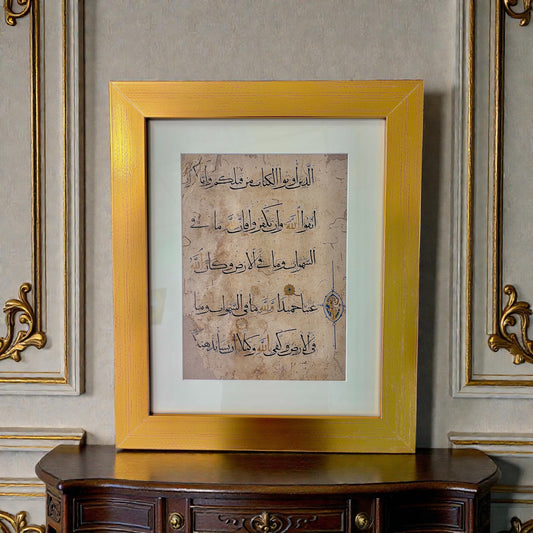 الَّذِينَ أُوتُوا الكتاب من قبلكم وإياكم
اتقوا الله وإن تكفروا فإن لله ما في
السموات وما في الأرض وكان الله
غنيا حميدا ولله ما في السموات وما
في الأرض وكفى بالله وكيلا إن يشأ يذهبكم